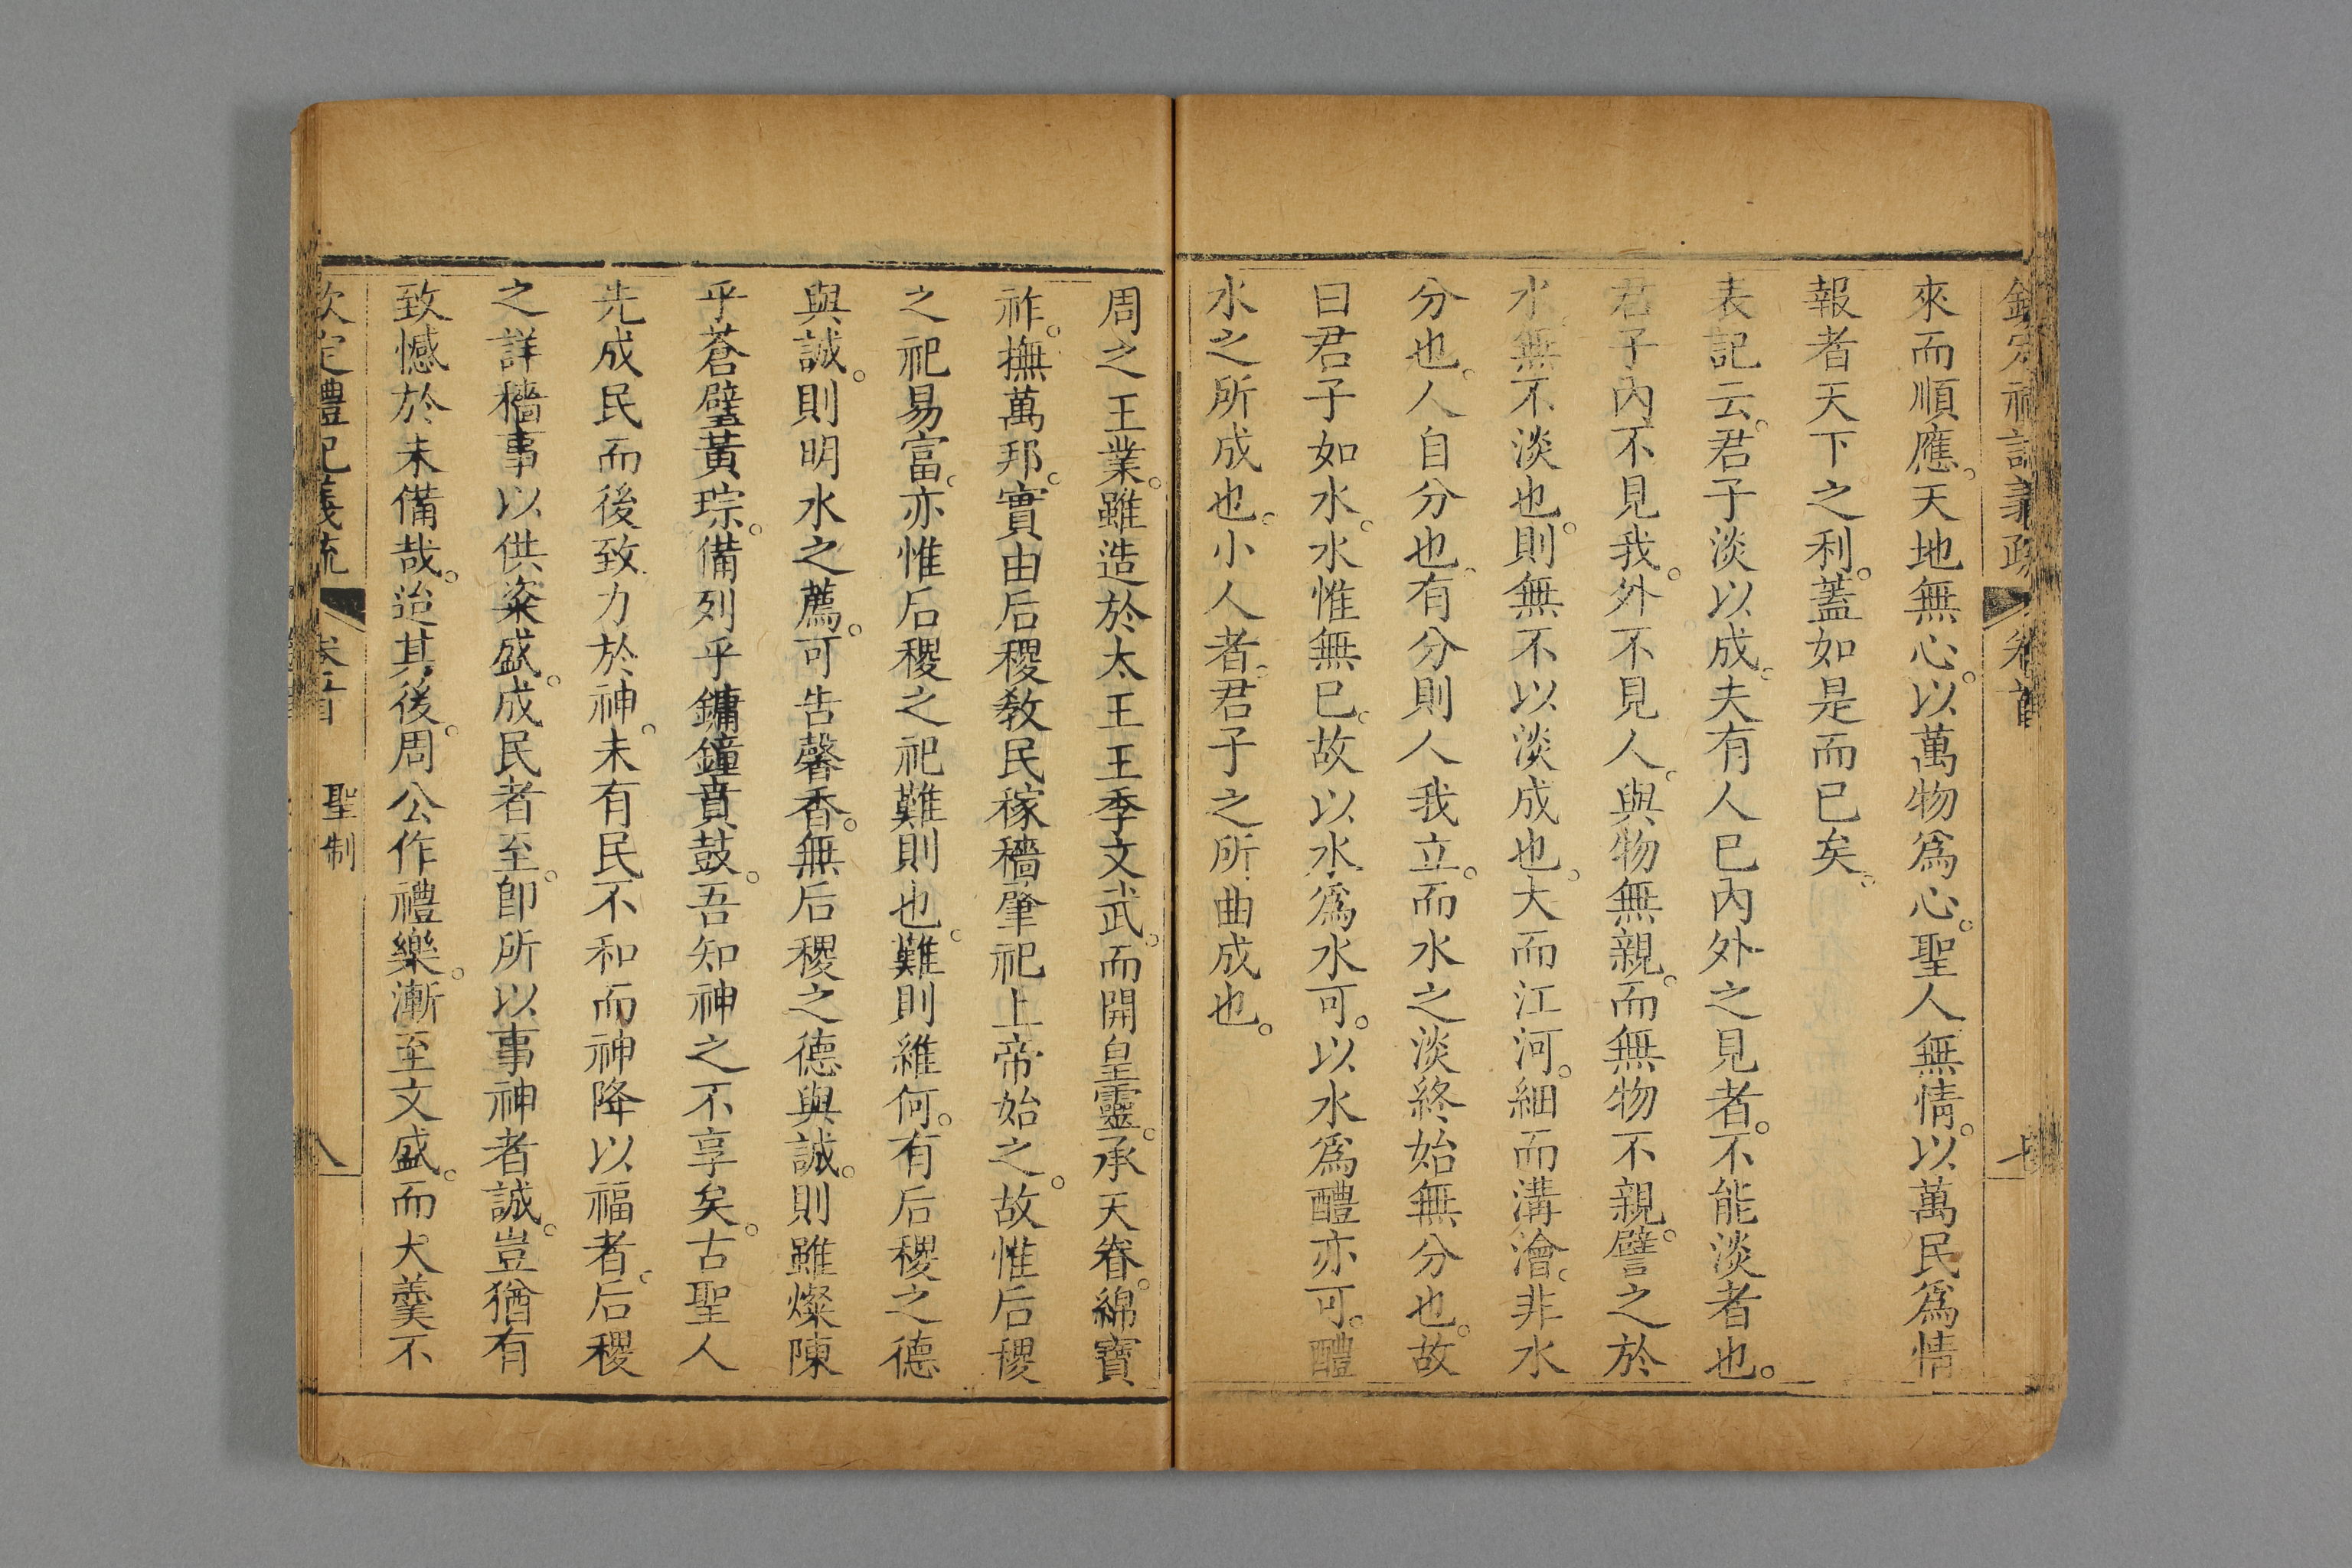 來而順應。天地無心。以萬物爲心。聖人無情。以萬民爲情
報者天下之利。蓋如是而已矣。
表記云。君子淡以成。夫有人已內外之見者。不能淡者也。
君子內不見我。外不見人。與物無親。而無物不親。譬之於
水。無不淡也。則無不以淡成也。大而江河。細而溝澮。非水
分也。人自分也。有分則人我立。而水之淡終始無分也。故
曰君子如水。水惟無已。故以水爲水可。以水爲醴亦可。醴
水之所成也。小人者。君子之所曲成也。
周之王業。雖造於太王王季文武。而開皇靈。承天眷。綿寶
祚。撫萬邦。實由后稷敎民稼穡。肇祀上帝始之。故惟后稷
之祀易富。亦惟后稷之祀難則也。難則維何。有后稷之德
與誠。則明水之薦。可告馨香。無后稷之德與誠。則雖燦陳
乎蒼璧黃琮。備列乎鏞鐘賁鼓。吾知神之不享矣。古聖人
先成民而後致力於神。未有民不和而神降以福者。后稷
之詳穡事以供粢盛。成民者至。卽所以事神者誠。豈猶有
致憾於未備哉。迨其後。周公作禮樂。漸至文盛。而大羹不
欽定禮記義疏 卷首 聖制 八